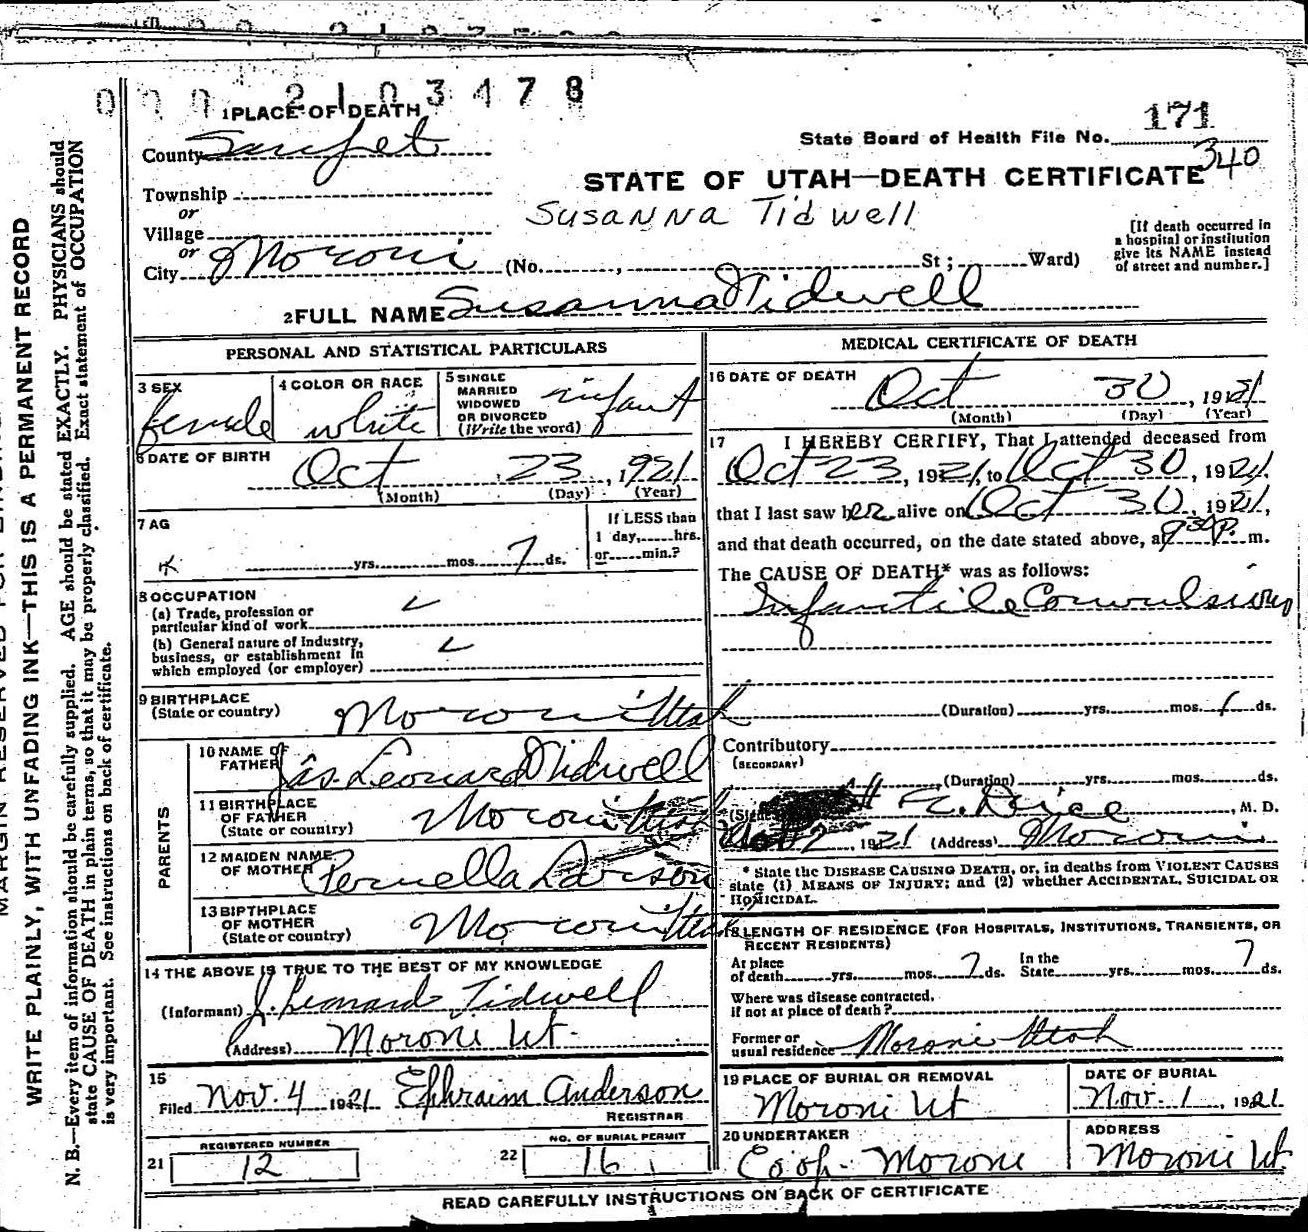 000 2103478
1 PLACE OF DEATH
State Board of Health File No. 171
County Sanpet
340
STATE OF UTAH—DEATH CERTIFICATE
Township
or
Susanna Tidwell
Village
or
City Moroni (No. , St ; Ward)
[If death occurred in
a hospital or institution
give its NAME instead
of street and number.]
2 FULL NAME Susanna Tidwell
PERSONAL AND STATISTICAL PARTICULARS
3 SEX
female
4 COLOR OR RACE
white
5 SINGLE
MARRIED
WIDOWED
OR DIVORCED
(Write the word)
infant
6 DATE OF BIRTH
Oct 23, 1921
(Month) (Day) (Year)
7 AG
yrs. mos. 7 ds.
If LESS than
1 day, hrs.
or min.?
8 OCCUPATION
(a) Trade, profession or
particular kind of work
(b) General nature of Industry,
business, or establishment in
which employed (or employer)
9 BIRTHPLACE
(State or country) Moroni Utah
PARENTS
10 NAME OF
FATHER Jas. Leonard Tidwell
11 BIRTHPLACE
OF FATHER
(State or country) Moroni Utah
12 MAIDEN NAME
OF MOTHER Pernella Larson
13 BIRTHPLACE
OF MOTHER
(State or country) Moroni Utah
14 THE ABOVE IS TRUE TO THE BEST OF MY KNOWLEDGE
(Informant) J. Leonard Tidwell
(Address) Moroni Ut.
15
Filed Nov. 4 1921 Ephraim Anderson
REGISTRAR
REGISTERED NUMBER
21 12
NO. OF BURIAL PERMIT
22 16
MEDICAL CERTIFICATE OF DEATH
16 DATE OF DEATH
Oct 30, 1921
(Month) (Day) (Year)
17 I HEREBY CERTIFY, That I attended deceased from
Oct 23, 1921, to Oct 30, 1921,
that I last saw her alive on Oct 30, 1921,
and that death occurred, on the date stated above, at 9 30 P. m.
The CAUSE OF DEATH* was as follows:
Infantile Convulsions
(Duration) yrs. mos. 1 ds.
Contributory
(SECONDARY)
(Duration) yrs. mos. ds.
, M. D.
1921 (Address) Moroni
* State the DISEASE CAUSING DEATH, or, in deaths from VIOLENT CAUSES
state (1) MEANS OF INJURY; and (2) whether ACCIDENTAL, SUICIDAL OR
HOMICIDAL.
18 LENGTH OF RESIDENCE (FOR HOSPITALS, INSTITUTIONS, TRANSIENTS, OR
RECENT RESIDENTS)
At place
of death yrs. mos. 7 ds.
In the
State yrs. mos. 7 ds.
Where was disease contracted,
if not at place of death?
Former or
usual residence Moroni Utah
19 PLACE OF BURIAL OR REMOVAL
Moroni Ut
DATE OF BURIAL
Nov. 1, 1921
20 UNDERTAKER
Co op. Moroni
ADDRESS
Moroni Ut
READ CAREFULLY INSTRUCTIONS ON BACK OF CERTIFICATE
WRITE PLAINLY, WITH UNFADING INK—THIS IS A PERMANENT RECORD
N. B.—Every item of information should be carefully supplied. AGE should be stated EXACTLY. PHYSICIANS should
state CAUSE OF DEATH in plain terms, so that it may be properly classified. Exact statement of OCCUPATION
is very important. See instructions on back of certificate.